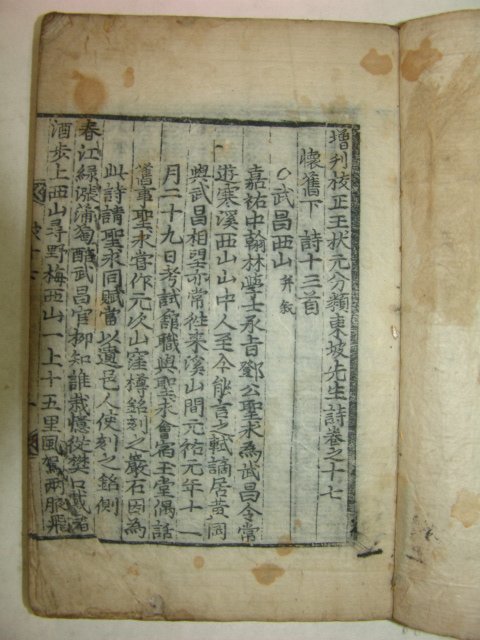 增刋校正王狀元分類東坡先生詩卷之十七
懷舊下 詩十三首
○武昌西山 并敘
嘉祐中翰林學士承旨鄧公聖求為武昌令常
遊寒溪西山山中人至今能言之軾謫居黃岡
與武昌相望亦常徃來溪山間元祐元年十一
月二十九日考試館職與聖求會宿玉堂偶話
舊事聖求嘗作元次山窪樽銘刻之巖石因為
此詩請聖求同賦當以遺邑人使刻之銘側
春江綠漲蒲萄醅武昌官柳知誰栽憶從樊口載春
酒步上西山尋野梅西山一上十五里風駕兩腋飛